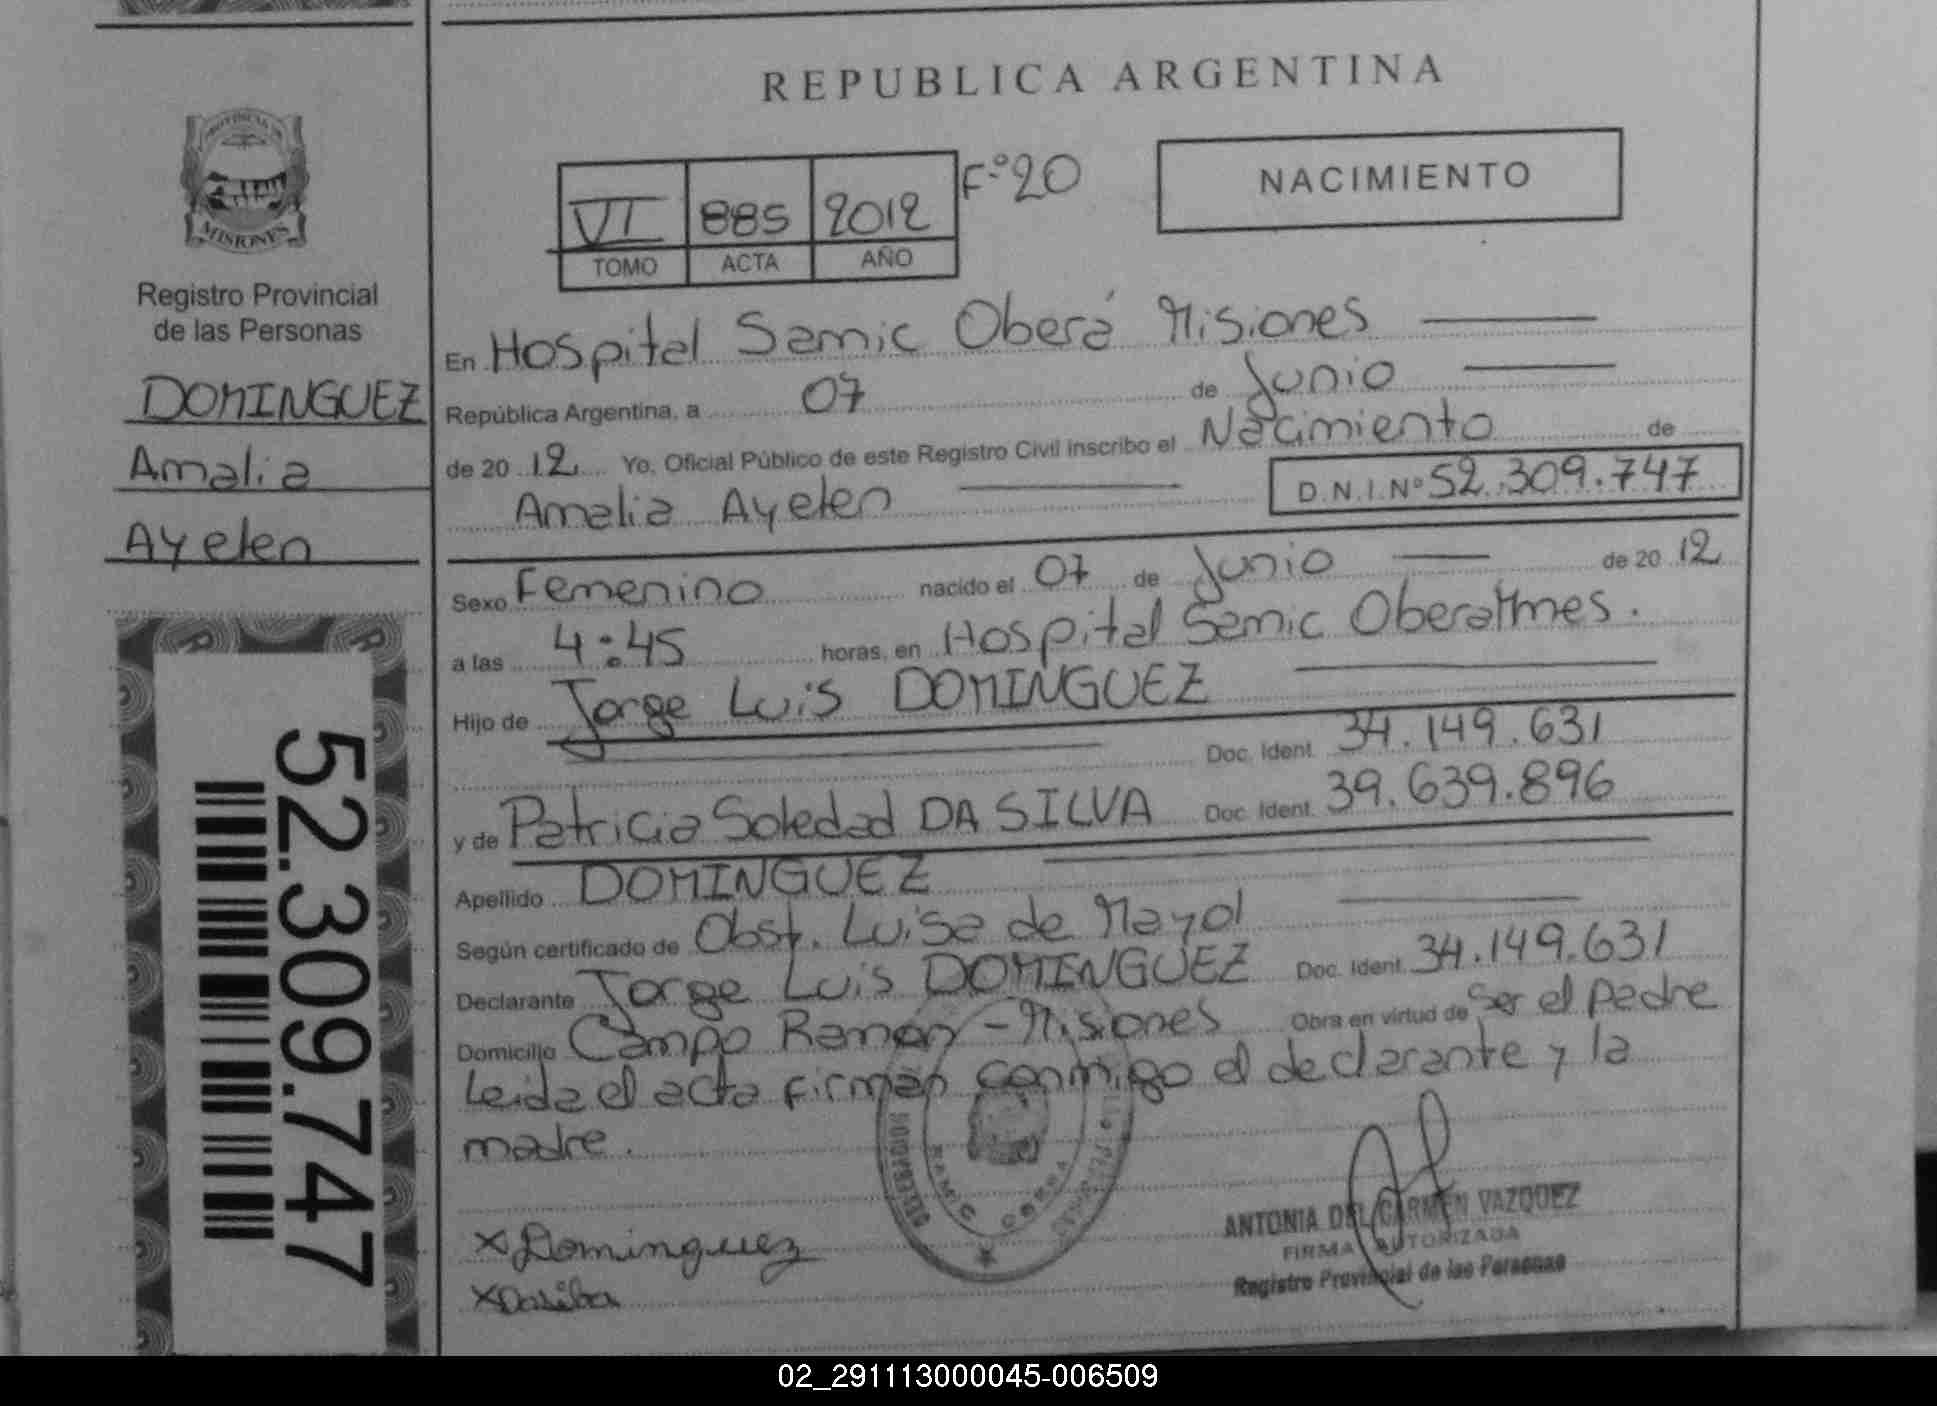 REPUBLICA ARGENTINA
PROVINCIA DE
MISIONES
Registro Provincial
de las Personas
DOMINGUEZ
Amalia
Ayelen
52.309.747
VI 885 2012 F:º20
TOMO ACTA AÑO
NACIMIENTO
En Hospital Samic Oberá Misiones
República Argentina, a 07 de Junio
de 20 12 Yo, Oficial Público de este Registro Civil inscribo el Nacimiento de
Amalia Ayelen D.N.I.Nº 52.309.747
Sexo Femenino nacido el 07 de Junio de 20 12
a las 4:45 horas, en Hospital Samic Obera Mnes.
Hijo de Jorge Luis DOMINGUEZ
Doc. Ident. 34.149.631
y de Patricia Soledad DA SILVA Doc. Ident. 39.639.896
Apellido DOMINGUEZ
Según certificado de Obst. Luisa de Mayol
Declarante Jorge Luis DOMINGUEZ Doc. Ident. 34.149.631
Domicilio Campo Ramon - Misiones Obra en virtud de Ser el padre
Leida el acta firman conmigo el declarante y la
madre.
x Dominguez
x Dasilva
ANTONIA DEL CARMEN VAZQUEZ
FIRMA AUTORIZADA
Registro Provincial de las Personas
02_291113000045-006509